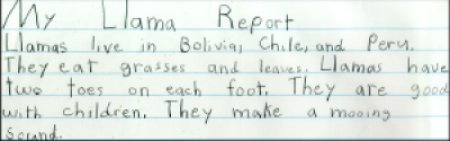 My Llama Report
Llamas live in Bolivia, Chile, and Peru.
They eat grasses and leaves. Llamas have
two toes on each foot. They are good
with children. They make a mooing
sound.